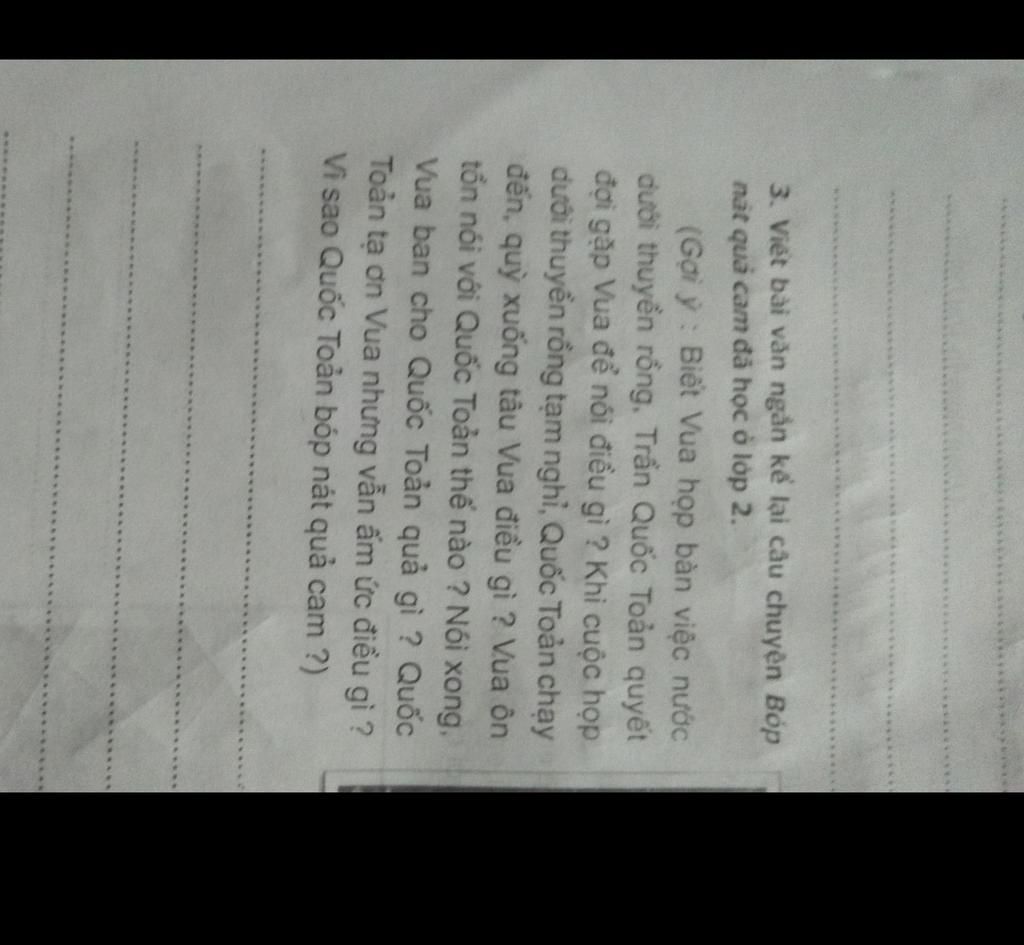 3. Viết bài văn ngắn kể lại câu chuyện Bóp
nát quả cam đã học ở lớp 2.
(Gợi ý : Biết Vua họp bàn việc nước
dưới thuyền rồng, Trần Quốc Toản quyết
đợi gặp Vua để nói điều gì ? Khi cuộc họp
dưới thuyền rồng tạm nghỉ, Quốc Toản chạy
đến, quỳ xuống tâu Vua điều gì ? Vua ôn
tồn nói với Quốc Toản thế nào ? Nói xong,
Vua ban cho Quốc Toản quả gì ? Quốc
Toản tạ ơn Vua nhưng vẫn ấm ức điều gì ?
Vì sao Quốc Toản bóp nát quả cam ?)